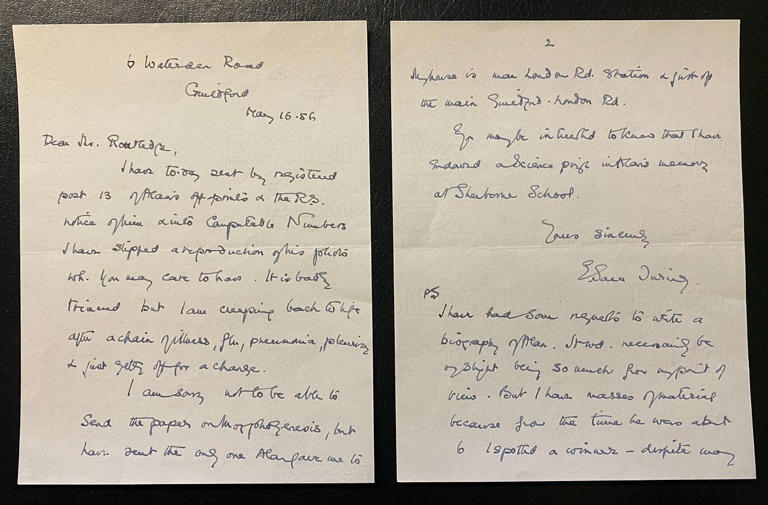 6 Waterden Road
Guildford
May 16. 56
Dear Mr. Routledge,
I have to-day sent by registered
post 13 of Alan's off prints & the R.S.
notice of him & into Computable Numbers
I have slipped a reproduction of his photo
wh. you may care to have. It is badly
trimmed but I am creeping back to life
after a chain of illness, flu, pneumonia, pleurisy
& just getting off for a change.
I am sorry not to be able to
send the papers on Morphogenesis, but
have sent the only one Alan gave me to
2
My house is near London Rd. Station & just off
the main Guildford - London Rd.
You may be interested to know that I have
endowed a Science prize in Alan's memory
at Sherborne School.
Yours sincerely
E. Sara Turing.
PS
I have had some requests to write a
biography of Alan. It wd. necessarily be
being so much from my point of
view. But I have masses of material
because from the time he was about
6 I spotted a winner – despite many